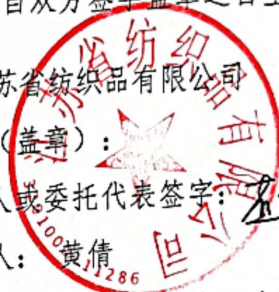 自双方签字盖章之日
苏省纺织品有限公司
(盖章):
人或委托代表签字:
人: 黄倩
江苏省纺织品有限公司